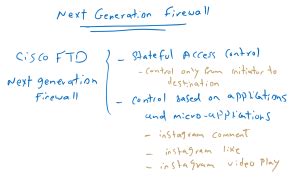 Next Generation Firewall
Cisco FTD
Next generation
Firewall
- Stateful Access Control
- control only from initiator to
destination
- control based on applications
and micro-applications
- instagram comment
- instagram like
- instagram video play